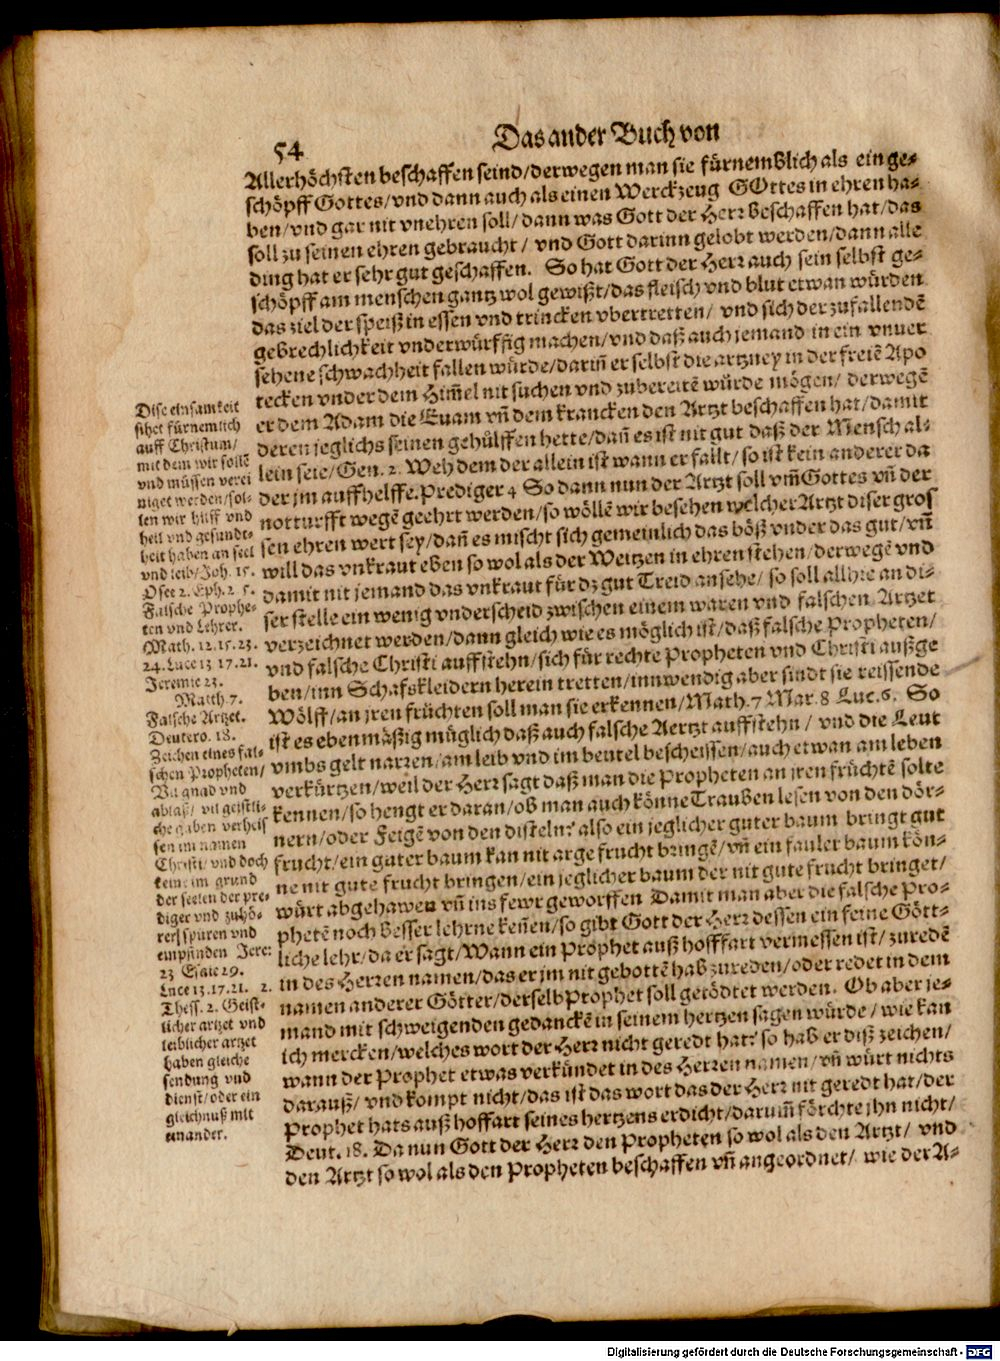 54
Das ander Buch von
Allerhöchsten beschaffen seind/derwegen man sie fürnemblich als ein ge-
schöpff Gottes/vnd dann auch als einen Werckzeug GOttes in ehren ha-
ben/vnd gar nit vnehren soll/dann was Gott der Herr beschaffen hat/das
soll zu seinen ehren gebraucht/ vnd Gott darinn gelobt werden/dann alle
ding hat er sehr gut geschaffen. So hat Gott der Herr auch sein selbst ge-
schöpff am menschen gantz wol gewißt/das fleisch vnd blut etwan würden
das ziel der speiß in essen vnd trincken vbertretten/ vnd sich der zufallendē
gebrechlichkeit vnderwürffig machen/vnd daß auch jemand in ein vnuer
sehene schwachheit fallen würde/dariñ er selbst die artzney in der freiē Apo
tecken vnder dem Him̃el nit suchen vnd zubereitē würde mögen/ derwegē
er dem Adam die Euam vñ dem krancken den Artzt beschaffen hat/damit
deren jeglichs seinen gehülffen hette/dañ es ist nit gut daß der Mensch al-
lein seie/Gen. 2. Weh dem der allein ist wann er fallt/so ist kein anderer da
der jm auffhelffe. Prediger 4 So dann nun der Artzt soll vm̃ Gottes vñ der
notturfft wegē geehrt werden/so wöllē wir besehen welcher Artzt diser gros
sen ehren wert sey/dañ es mischt sich gemeinlich das böß vnder das gut/vñ
will das vnkraut eben so wol als der Weitzen in ehren stehen/derwegē vnd
damit nit jemand das vnkraut für dz gut Treid ansehe/ so soll allhie an di-
ser stelle ein wenig vnderscheid zwischen einem waren vnd falschen Artzet
verzeichnet werden/dann gleich wie es möglich ist/daß falsche Propheten/
vnd falsche Christi auffstehn/sich für rechte Propheten vnd Christi außge
ben/inn Schafskleidern herein tretten/innwendig aber sindt sie reissende
Wölff/an jren früchten soll man sie erkennen/Math. 7 Mar. 8 Luc. 6. So
ist es ebenmäßig müglich daß auch falsche Aertzt auffstehn/ vnd die Leut
vmbs gelt narren/am leib vnd im beutel bescheissen/auch etwan am leben
verkürtzen/weil der Herr sagt daß man die Propheten an jren früchtē solte
kennen/so hengt er daran/ob man auch könne Trauben lesen von den dör-
nern/oder Feigē von den disteln? also ein jeglicher guter baum bringt gut
frucht/ein guter baum kan nit arge frucht bringē/vñ ein fauler baum kön-
ne nit gute frucht bringen/ein jeglicher baum der nit gute frucht bringet/
würt abgehawen vñ ins fewr geworffen Damit man aber die falsche Pro-
phetē noch besser lehrne keñen/so gibt Gott der Herr dessen ein feine Gött-
liche lehr/da er sagt/Wann ein Prophet auß hofffart vermessen ist/zuredē
in des Herren namen/das er jm nit gebottē hab zureden/oder redet in dem
namen anderer Götter/derselb Prophet soll getödtet werden. Ob aber je-
mand mit schweigenden gedanckē in seinem hertzen sagen würde/ wie kan
ich mercken/welches wort der Herr nicht geredt hat? so hab er diß zeichen/
wann der Prophet etwas verkündet in des Herren namen/vñ würt nichts
darauß/ vnd kompt nicht/das ist das wort das der Herr nit geredt hat/der
Prophet hats auß hoffart seines hertzens erdicht/darum̃ förchte jhn nicht/
Deut. 18. Da nun Gott der Herr den Propheten so wol als den Artzt/ vnd
den Artzt so wol als den Propheten beschaffen vñ angeordnet/ wie der A-
Dise einsamkeit
sihet fürnemlich
auff Christum/
mit dem wir sollē
vnd müssen verei
niget werden/sol-
len wir hilff vnd
heil vnd gesundt-
heit haben an seel
vnd leib/Joh. 15.
Osee 2. Eph. 2 5.
Falsche Prophe-
ten vnd Lehrer.
Math. 12. 15. 23.
24. Luce 13 17. 21.
Jeremie 23.
Matth 7.
Falsche Artzet.
Deutero. 18.
Zeichen eines fal-
schen Propheten/
Vil gnad vnd
ablaß/ vil geistli-
che gaben verheis
sen im namen
Christi/ vnd doch
keine im grund
der seelen der pre-
diger vnd zuhö-
rer spüren vnd
empfinden Jere:
23 Esaie 29.
Luce 13. 17. 21. 2.
Thess. 2. Geist-
licher artzet vnd
leiblicher artzet
haben gleiche
sendung vnd
dienst/oder ein
gleichnuß mit
einander.
Digitalisierung gefördert durch die Deutsche Forschungsgemeinschaft - DFG